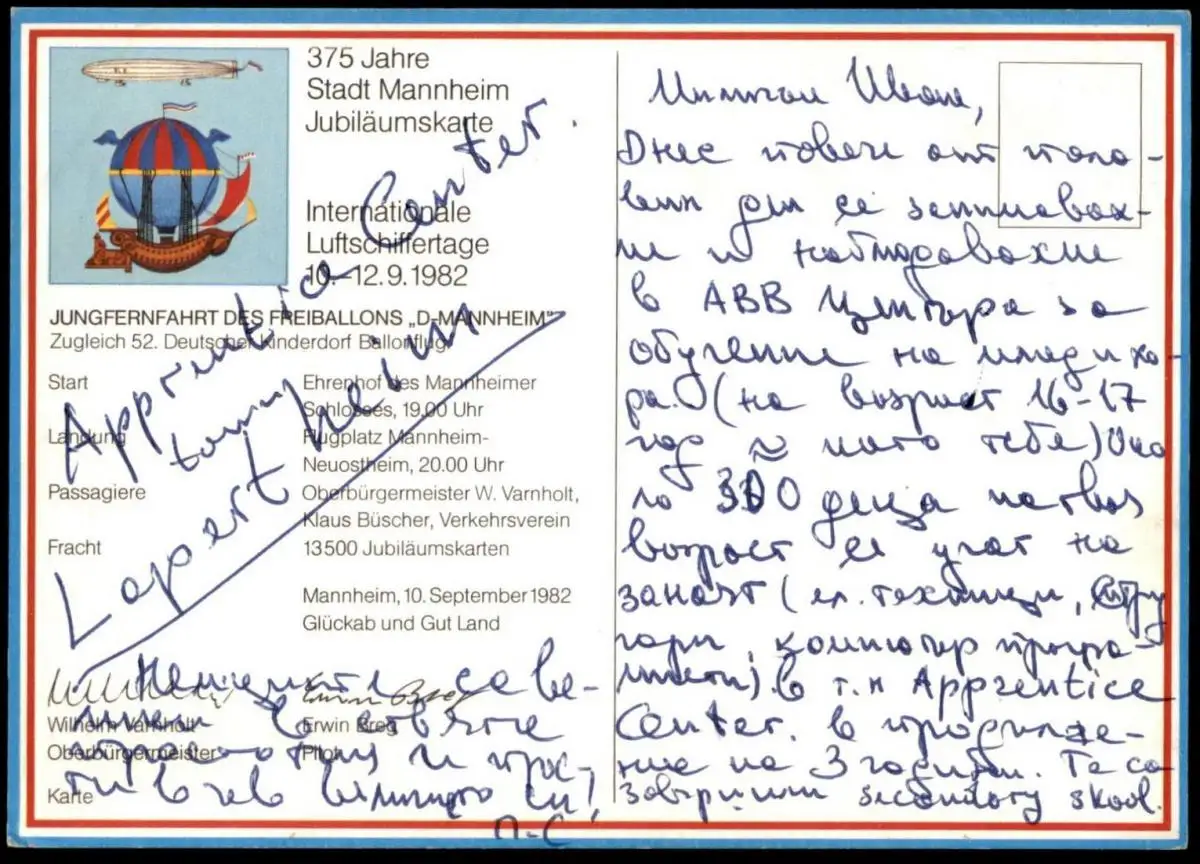 375 Jahre
Stadt Mannheim
Jubiläumskarte
Internationale
Luftschiffertage
10.–12.9.1982
JUNGFERNFAHRT DES FREIBALLONS „D-MANNHEIM“
Zugleich 52. Deutscher Kinderdorf Ballonflug
Start Ehrenhof des Mannheimer
Schlosses, 19.00 Uhr
Landung Flugplatz Mannheim-
Neuostheim, 20.00 Uhr
Passagiere Oberbürgermeister W. Varnholt,
Klaus Büscher, Verkehrsverein
Fracht 13500 Jubiläumskarten
Mannheim, 10. September 1982
Glückab und Gut Land
Wilhelm Varnholt Erwin Breg
Oberbürgermeister Pilot
Karte
Apprentice Center.
Lapertheim
Немците са ве-
и прос-
ти в
П-С
Иван,
Днес повече от поло-
вин ден се занимавах-
ме и наблюдавахме
в АВВ Центъра за
обучение на млади хо-
ра. (на възраст 16-17
год ≈ като тебе) Око
ло 300 деца на тази
възраст се учат на
занаят (ел. техници, стру
гари, компютър програ-
мисти). в т.н Apprentice
Center. в продълже-
ние на 3 години. Те са
завършили secondory skool.